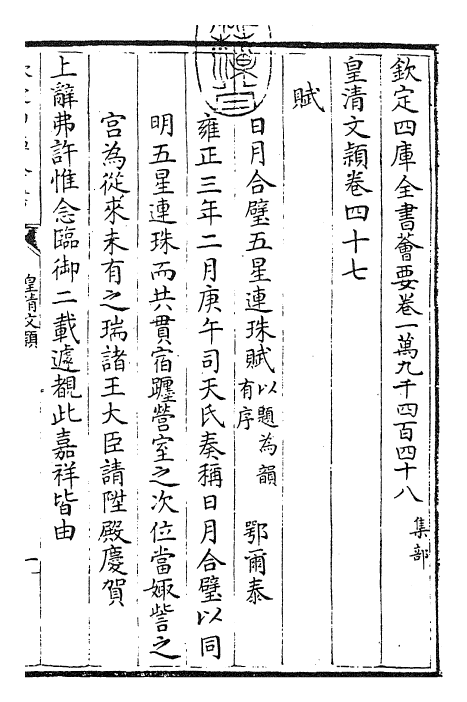 欽定四庫全書薈要卷一萬九千四百四十八 集部
皇清文穎卷四十七
賦
日月合璧五星連珠賦 以題為韻 有序 鄂爾泰
雍正三年二月庚午司天氏奏稱日月合璧以同
明五星連珠而共貫宿躔營室之次位當娵訾之
宮為從來未有之瑞諸王大臣請陞殿慶賀
上辭弗許惟念臨御二載遽覩此嘉祥皆由
皇清文穎
一